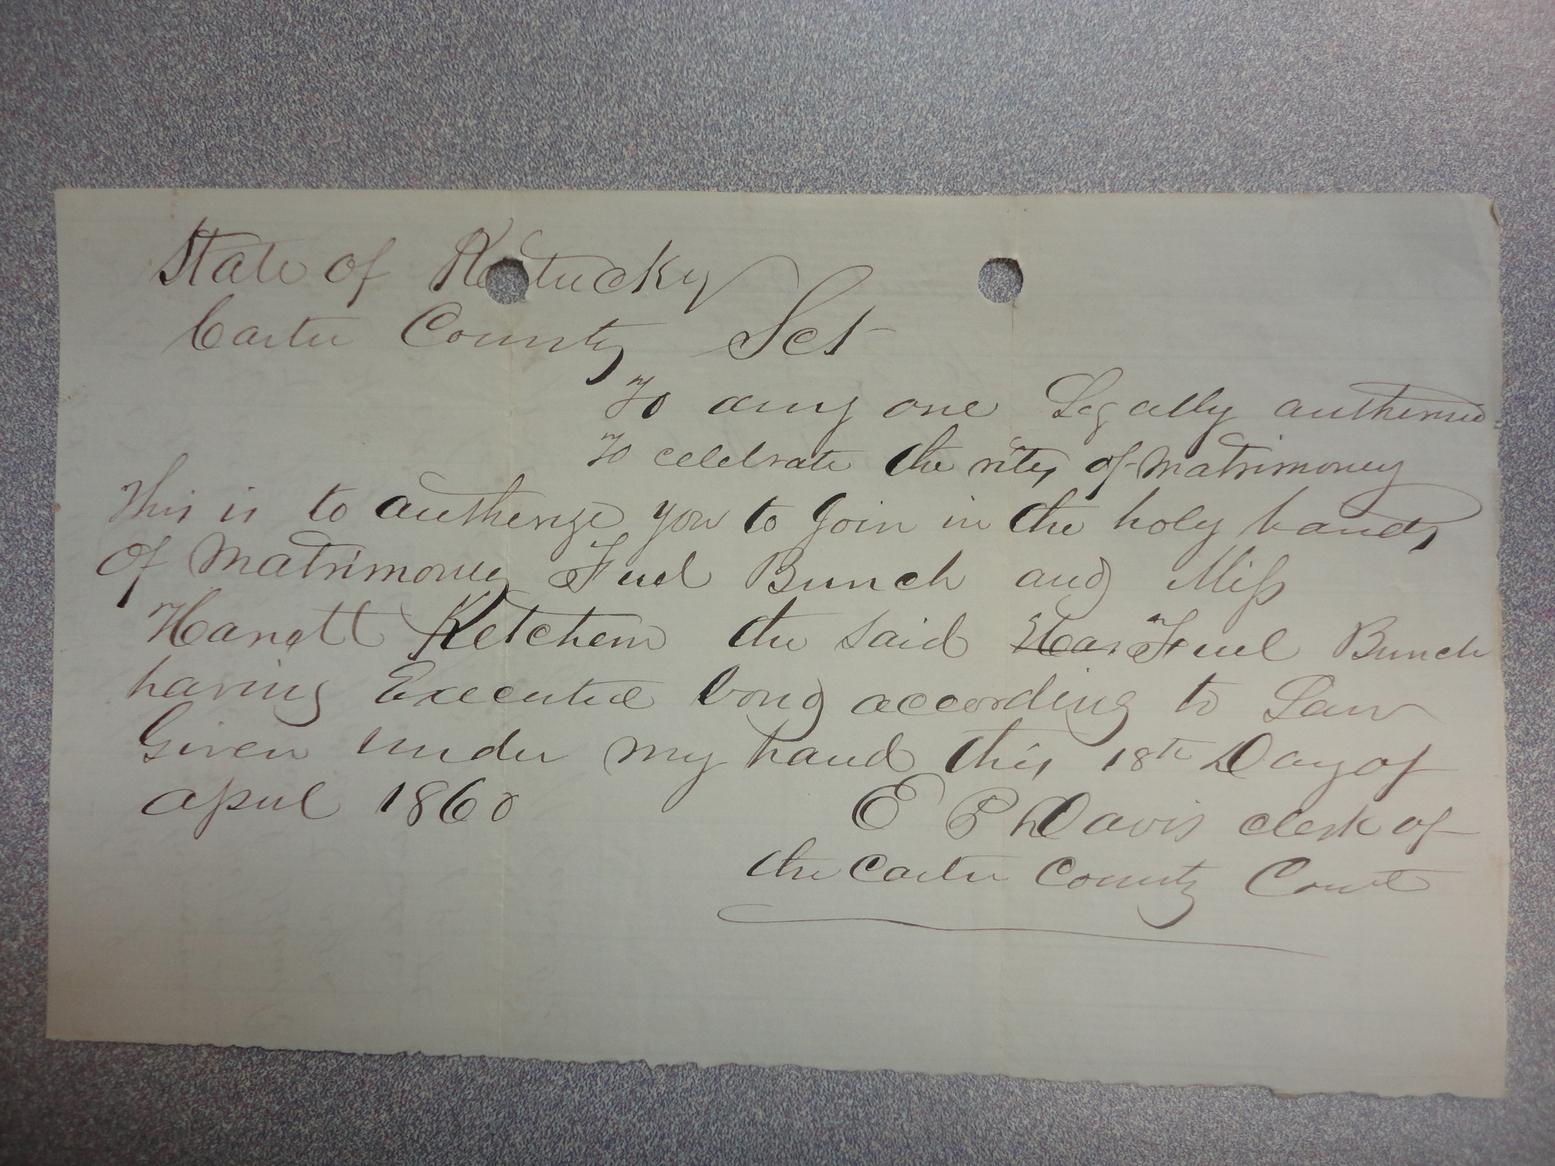 State of Kentucky
Carter County Sct
To any one Legally autherised
To celebrate the rites of Matrimoney
This is to autherize you to Join in the holy bands
of Matrimoney Fuel Bunch and Miss
Harrett Ketchem the said Har Fuel Bunch
having Executed bond according to Law
Given under my hand this 18th Day of
April 1860
E P Davis clerk of
the Carter County Court